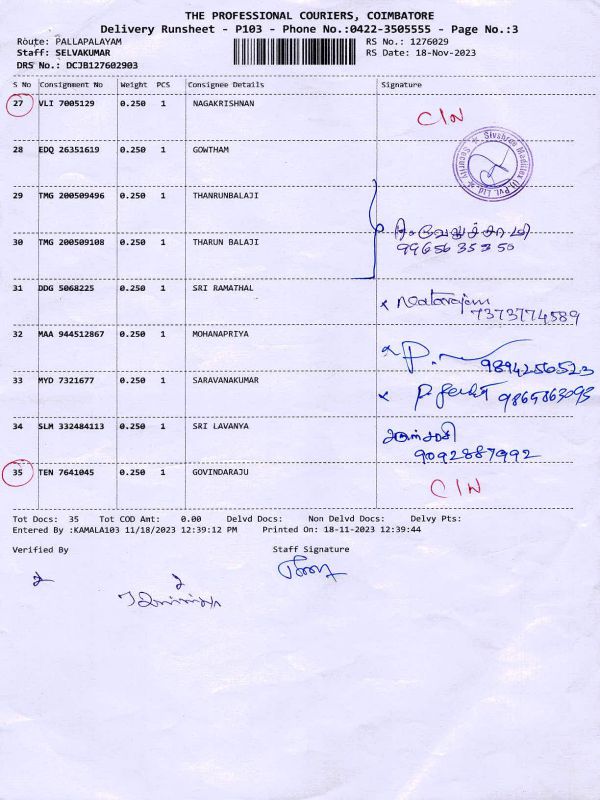 THE PROFESSIONAL COURIERS, COIMBATORE
Delivery Runsheet - P103 - Phone No.:0422-3505555 - Page No.:3
Route: PALLAPALAYAM RS No.: 1276029
Staff: SELVAKUMAR RS Date: 18-Nov-2023
DRS No.: DCJB127602903
S No Consignment No Weight PCS Consignee Details Signature
27 VLI 7005129 0.250 1 NAGAKRISHNAN C/N
28 EDQ 26351619 0.250 1 GOWTHAM
29 TMG 200509496 0.250 1 THANRUNBALAJI
30 TMG 200509108 0.250 1 THARUN BALAJI
9965635350
31 DDG 5068225 0.250 1 SRI RAMATHAL
Natarajan
7373774589
32 MAA 944512867 0.250 1 MOHANAPRIYA
P. 9894256523
33 MYD 7321677 0.250 1 SARAVANAKUMAR
9865863093
34 SLM 332484113 0.250 1 SRI LAVANYA
9092887992
35 TEN 7641045 0.250 1 GOVINDARAJU C/N
Tot Docs: 35 Tot COD Amt: 0.00 Delvd Docs: Non Delvd Docs: Delvy Pts:
Entered By :KAMALA103 11/18/2023 12:39:12 PM Printed On: 18-11-2023 12:39:44
Verified By Staff Signature